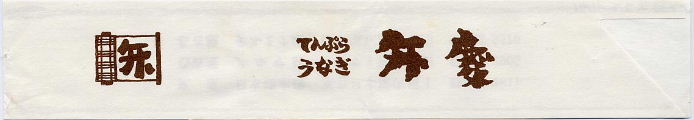 弁
てんぷら
うなぎ
弁慶